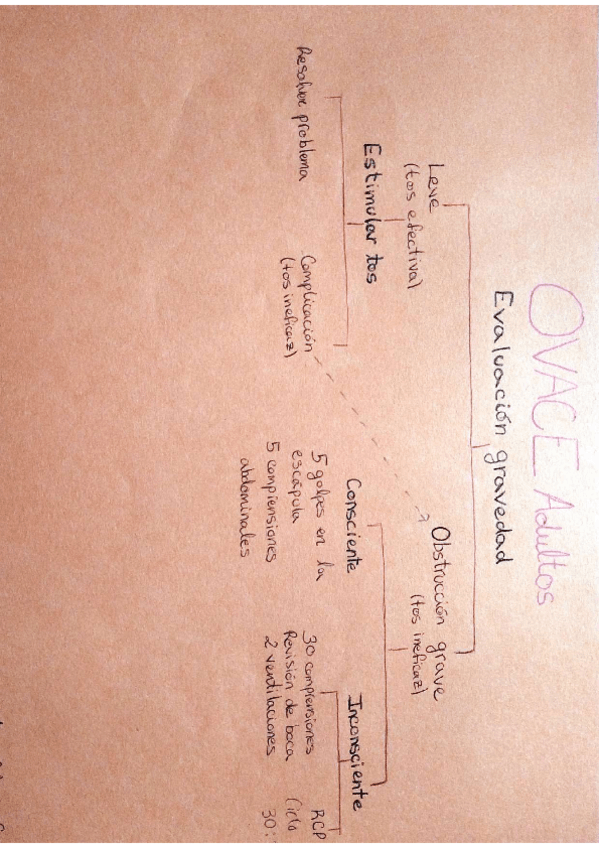 OVACE Adultos
Evaluación gravedad
Leve
(tos efectiva)
Obstrucción grave
(tos ineficaz)
Estimular tos
Resolver problema
Complicación
(tos ineficaz)
Consciente
5 golpes en la
escápula
5 compiensiones
abdominales
Inconsciente
30 compiensiones
Revisión de boca
2 ventilaciones
RCP
Ciclo
30: